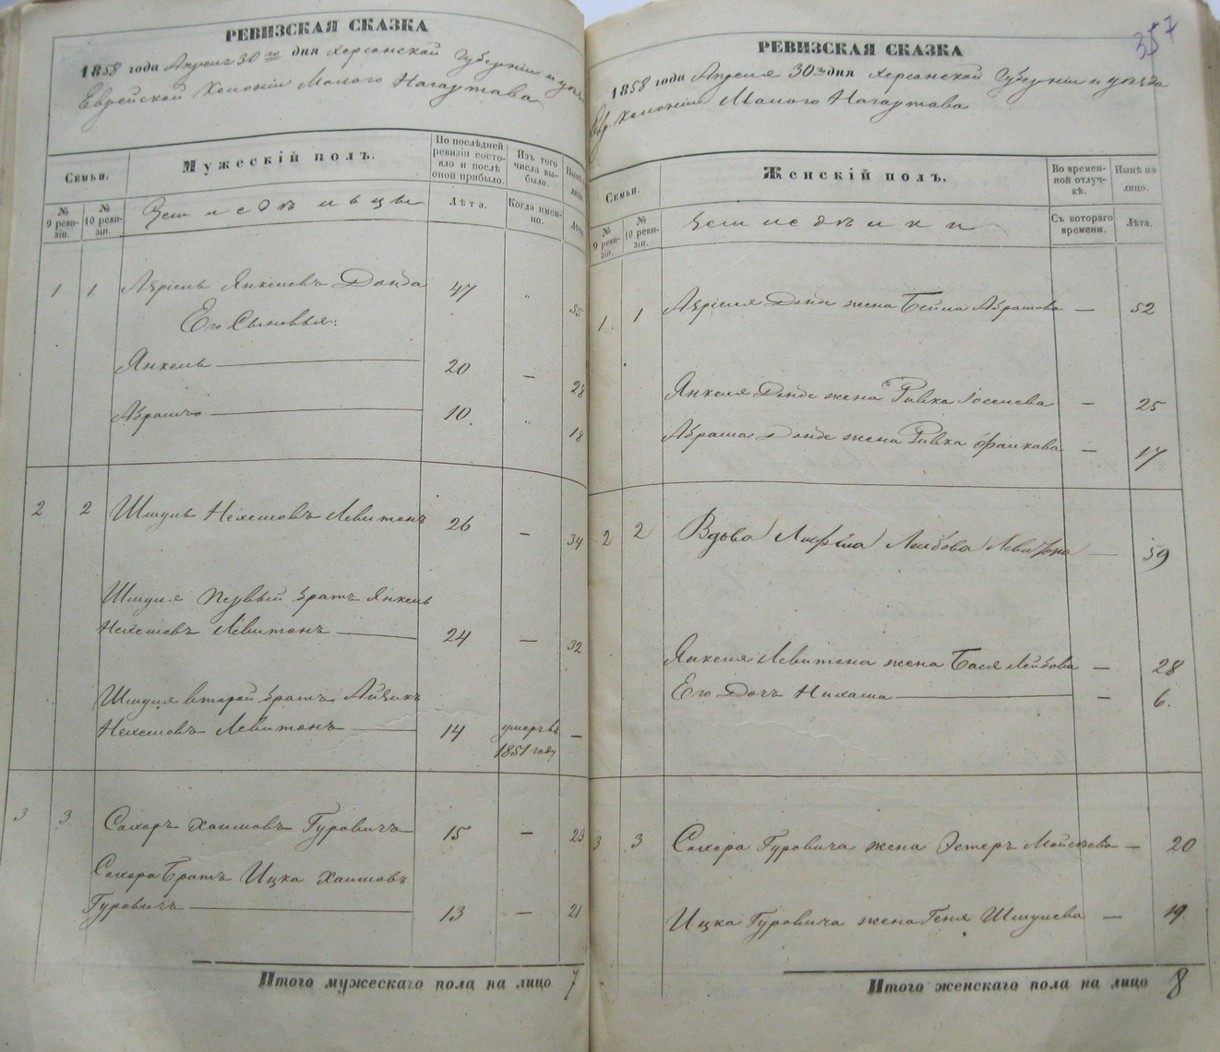 РЕВИЗСКАЯ СКАЗКА
1858 года Апреля 30го дня Херсонской Губерніи и уѣзда
Еврейской Колоніи Малого Нагартава
Семьи.
Мужескій полъ.
По послѣдней ревизіи состояло и послѣ оной прибыло.
Изъ того числа выбыло.
№ 9 ревизіи.
№ 10 ревизіи.
Земледѣльцы
Лѣта.
Когда именно.
Лѣта.
1 1 Янкелевъ Донда 47 55
Его Сыновья:
Янкель 20 — 28
Абрамъ 10. 18
2 2 Шмуль Нехемовъ Левитонъ 26 — 34
Шмуля первый братъ Янкель
Нехемовъ Левитонъ 24 — 32
Шмуля второй братъ Айзикъ
Нехемовъ Левитонъ 14 умеръ въ 1851 году —
3 3 Сахеръ Хаимовъ Гуровичъ 15 — 23
Сахера Братъ Ицка Хаимовъ
Гуровичъ 13 — 21
Итого мужескаго пола на лицо 7
357
РЕВИЗСКАЯ СКАЗКА
1858 года Апреля 30го дня Херсонской Губерніи и уѣзда
Евр. Колоніи Малого Нагартава
Семьи.
Женскій полъ.
Во временной отлучкѣ.
Нынѣ на лицо.
№ 9 ревизіи.
№ 10 ревизіи.
Земледѣлки
Съ котораго времени.
Лѣта.
1. 1 Донде жена Бейла Абрамова — 52
Янкеля Донде жена Ривка Іоселева — 25
Абрама Донде жена Ривка Фаликова — 17
2 2 Вдова Лейбова Левитона — 59
Янкеля Левитона жена Бася Лейбова — 28
Его Дочь Нихама — 6.
3 3 Сахера Гуровича жена Эстеръ Мойсѣева — 20
Ицка Гуровича жена Геня Шмулева — 19.
Итого женскаго пола на лицо 8